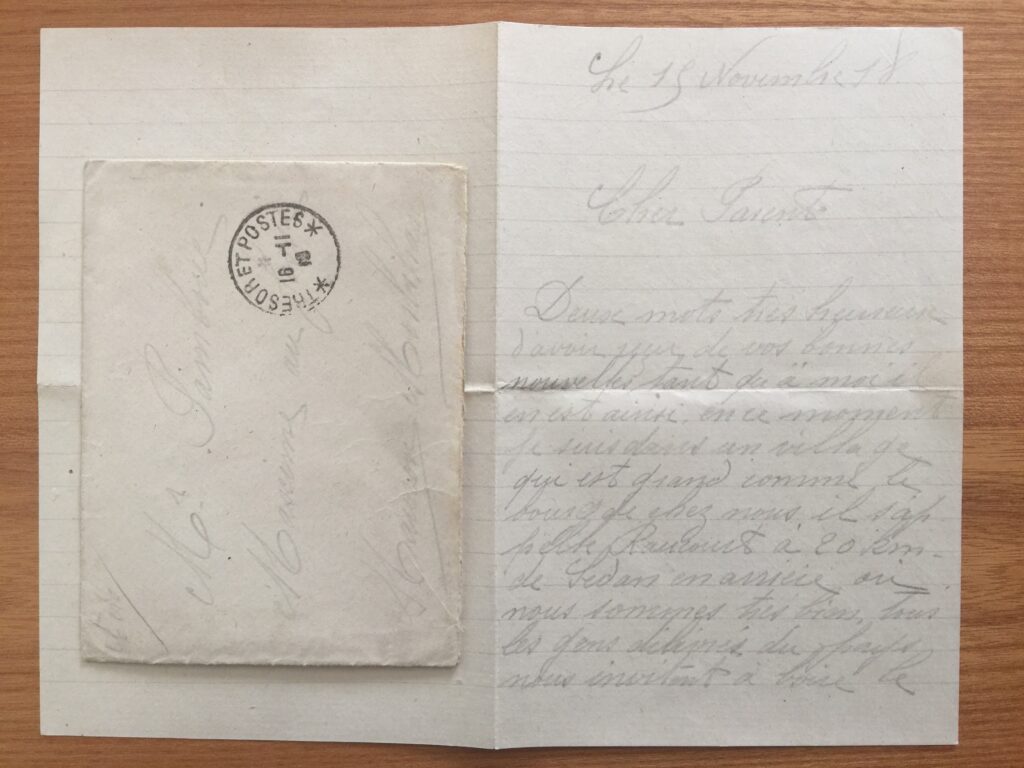 TRESOR ET POSTES
11-1
16
Mr
Maxime
Le 15 Novembre 18
Cher Parent
Deux mots tres heureux
d'avoir reçu de vos bonnes
nouvelles tant qu'à moi il
en est ainsi. en ce moment
Je suis dans un village
qui est grand comme le
bourg de chez nous, il s'ap
pelle Raucourt à 20 km
de Sedan en arriere où
nous sommes tres bien, tous
les gens du pays
nous invitent à boire le